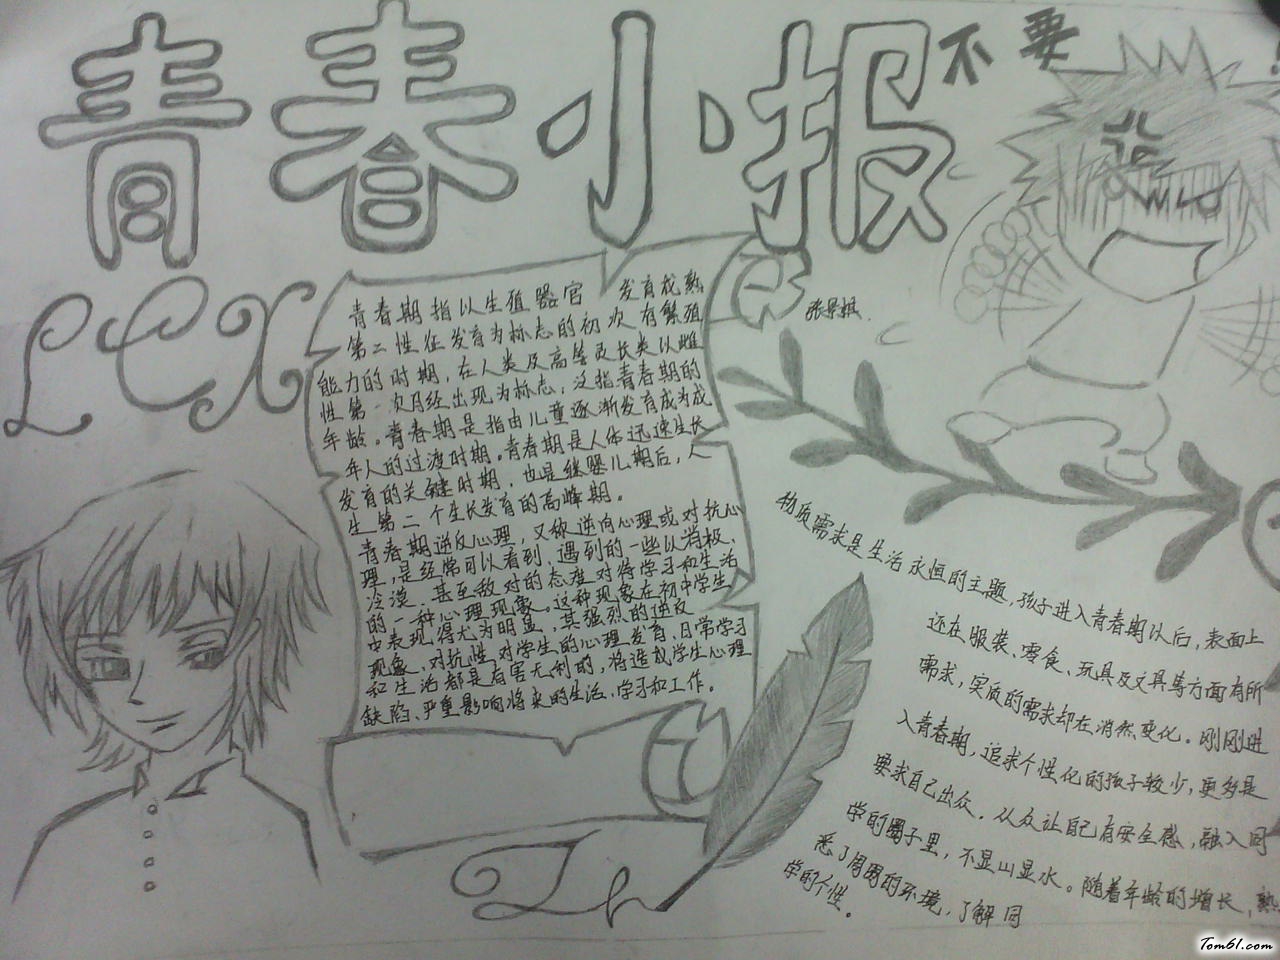 青春小报
不要
LCX
青春期指以生值器官 发育成熟
第二性征发育为标志的初次有繁殖
能力的时期,在人类及高等灵长类以雌
性第一次月经出现为标志,泛指青春期的
年龄。青春期是指由儿童逐渐发育成为成
年人的过渡时期。青春期是人体迅速生长
发育的关键时期,也是继婴儿期后,人
生第二个生长发育的高峰期。
青春期逆反心理,又称逆向心理或对抗心
理,是经常可以看到、遇到的一些以消极、
冷漠、甚至敌对的态度对待学习和生活
的一种心理现象。这种现象在初中学生
中表现得尤为明显,其强烈的逆反
现象、对抗性对学生的心理发育、日常学习
和生活都是有害无利的,将造成学生心理
缺陷、严重影响将来的生活、学习和工作。
物质需求是生活永恒的主题,孩子进入青春期以后,表面上
还在服装、零食、玩具及文具等方面有所
需求,实质的需求却在消然变化。刚刚进
入青春期,追求个性化的孩子较少,更多是
要求自己出众。从众让自己有安全感,融入同
学的圈子里,不显山显水。随着年龄的增长,熟
悉了周围的环境,了解同
学的个性。
Tom61.com